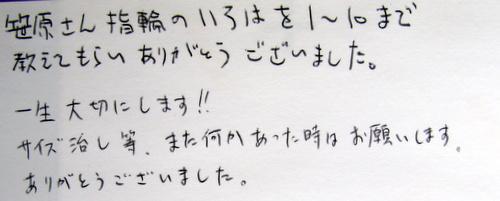 笹原さん 指輪のいろはを1〜10まで
教えてもらいありがとうございました。
一生大切にします!!
サイズ治し等、また何かあった時はお願いします。
ありがとうございました。